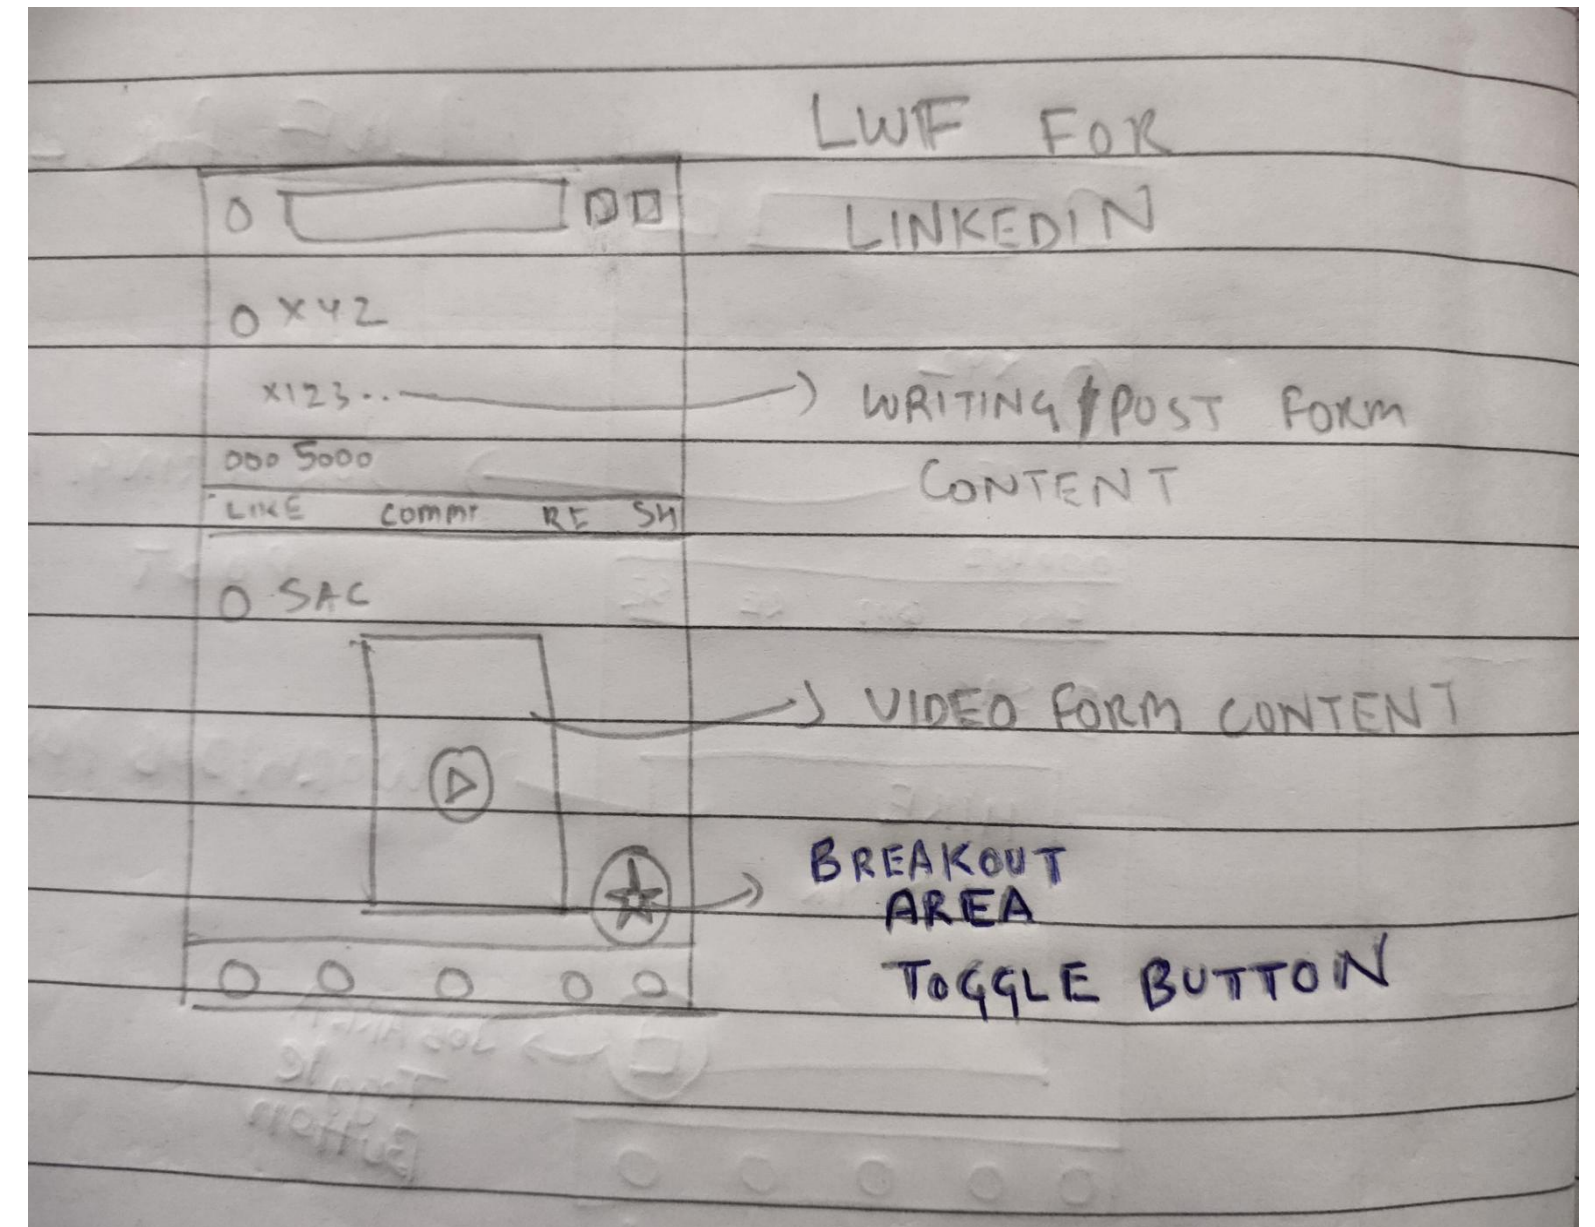 LWF FOR
LINKEDIN
XYZ
X123..
WRITING/POST FORM
CONTENT
5000
LIKE COMMT RE SH
SAC
VIDEO FORM CONTENT
BREAKOUT
AREA
TOGGLE BUTTON